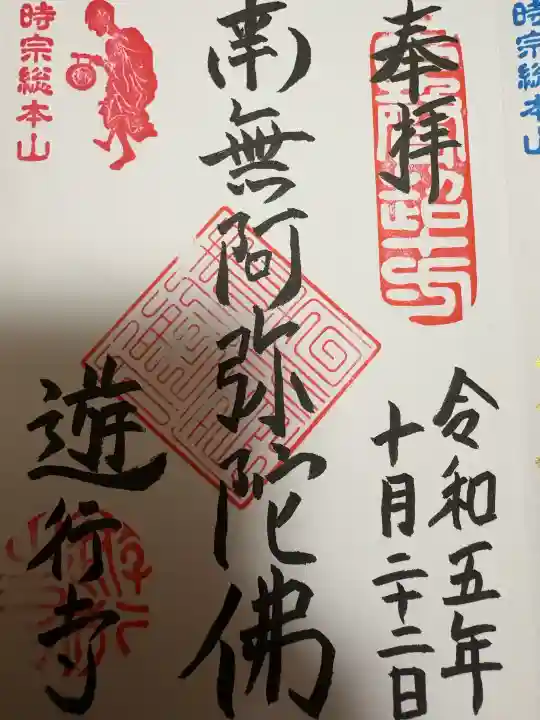 時宗総本山
奉拝
令和五年
十月二十二日
南無阿弥陀佛
遊行寺
時宗総本山